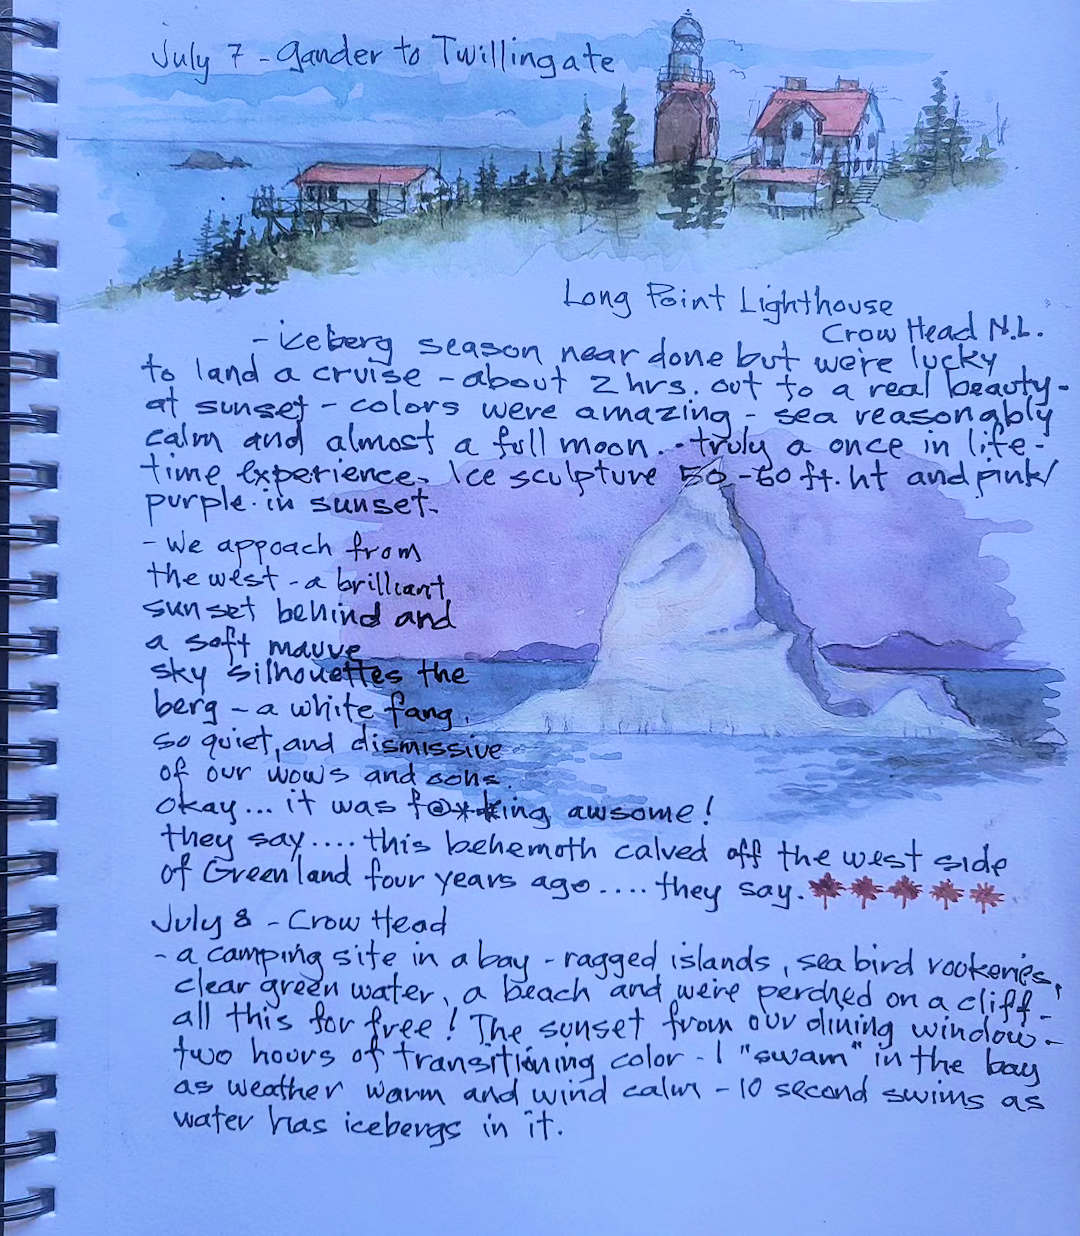 July 7 - Gander to Twillingate
Long Point Lighthouse
Crow Head N.L.
- iceberg season near done but we're lucky
to land a cruise - about 2 hrs. out to a real beauty -
at sunset - colors were amazing - sea reasonably
calm and almost a full moon. - truly a once in life -
time experience. Ice sculpture 50 - 60 ft. ht and pink/
purple in sunset.
- We appoach from
the west - a brilliant
sunset behind and
a soft mauve
sky silhouettes the
berg - a white fang.
so quiet, and dismissive
of our wows and oohs.
Okay... it was f@**king awsome!
they say.... this behemoth calved off the west side
of Greenland four years ago.... they say.
July 8 - Crow Head
- a camping site in a bay - ragged islands, sea bird rookeries,
clear green water, a beach and we're perched on a cliff -
all this for free! The sunset from our dining window -
two hours of transitioning color - I "swam" in the bay
as weather warm and wind calm - 10 second swims as
water has icebergs in it.